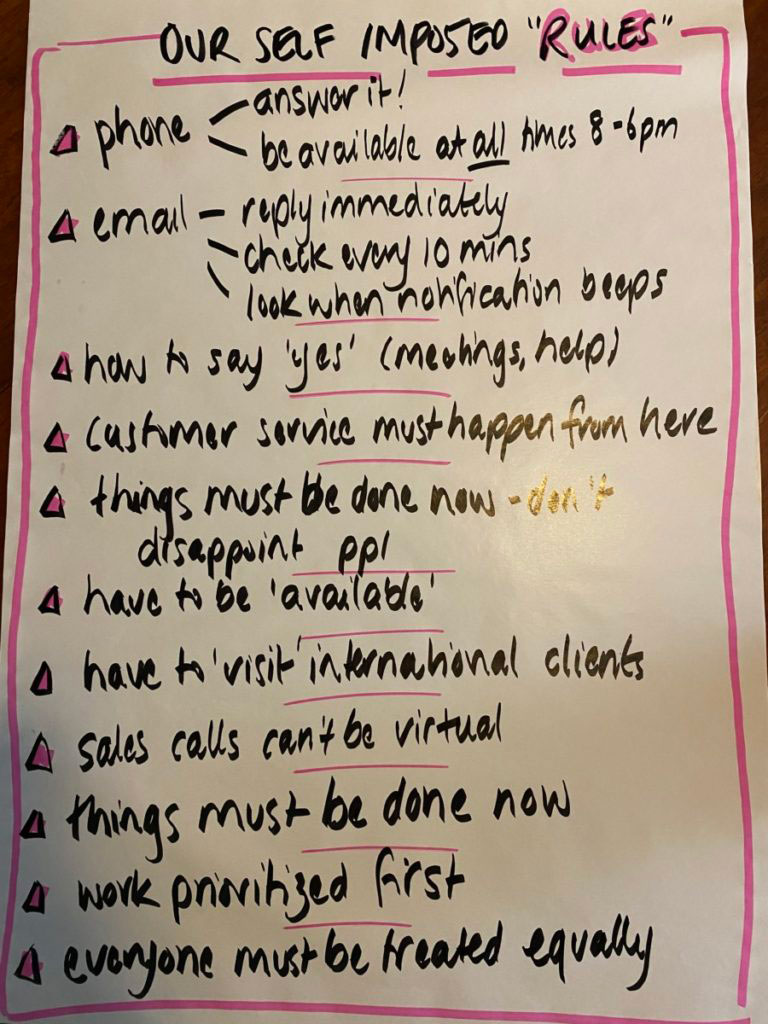 OUR SELF IMPOSED "RULES"
phone
answer it!
be available at all times 8-6pm
email - reply immediately
check every 10 mins
look when notification beeps
how to say 'yes' (meetings, help)
customer service must happen from here
things must be done now - don't
disappoint ppl
have to be 'available'
have to 'visit' international clients
sales calls can't be virtual
things must be done now
work prioritized first
everyone must be treated equally